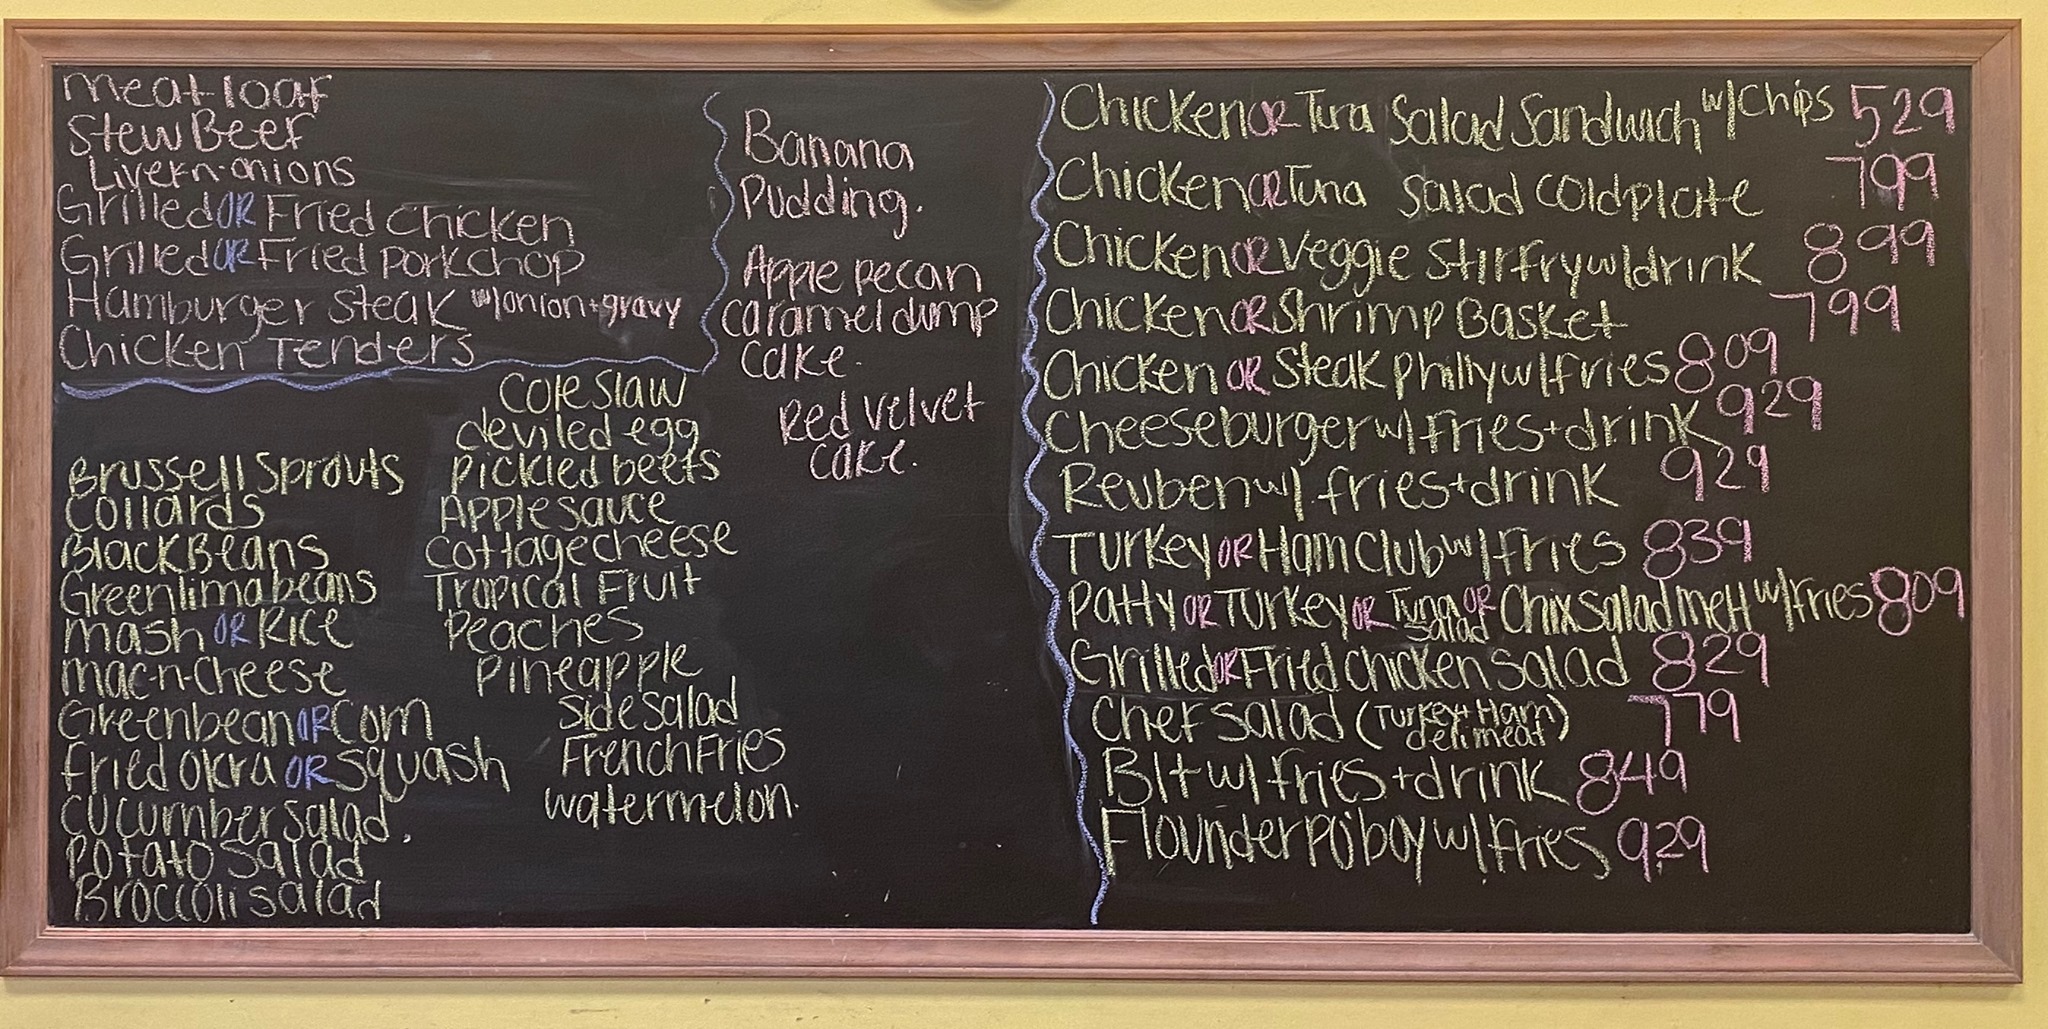 Meatloaf
Stew Beef
Liver-n-onions
Grilled OR Fried Chicken
Grilled OR Fried Porkchop
Hamburger Steak w/onion+gravy
Chicken Tenders
Brussell Sprouts
Collards
Black Beans
Green lima beans
Mash OR Rice
Mac-n-Cheese
Greenbean OR Corn
Fried Okra OR Squash
Cucumber Salad.
Potato Salad
Broccoli salad
Cole Slaw
deviled egg
Pickled beets
Applesauce
Cottage cheese
Tropical Fruit
Peaches
Pineapple
Side Salad
French Fries
Watermelon.
Banana
Pudding.
Apple Pecan
Caramel dump
Cake.
Red Velvet
Cake.
Chicken OR Tuna Salad Sandwich w/Chips 529
Chicken OR Tuna Salad Coldplate 799
Chicken OR Veggie Stirfry w/drink 899
Chicken OR Shrimp Basket 799
Chicken OR Steak Philly w/fries 809
Cheeseburger w/fries+drink 929
Reuben w/ fries+drink 929
Turkey OR Ham Club w/fries 839
Patty OR Turkey OR Tuna Salad OR Chix Salad melt w/fries 809
Grilled OR Fried Chicken Salad 829
Chef Salad (Turkey+Ham deli meat) 779
Blt w/fries+drink 849
Flounder Po'boy w/fries 929